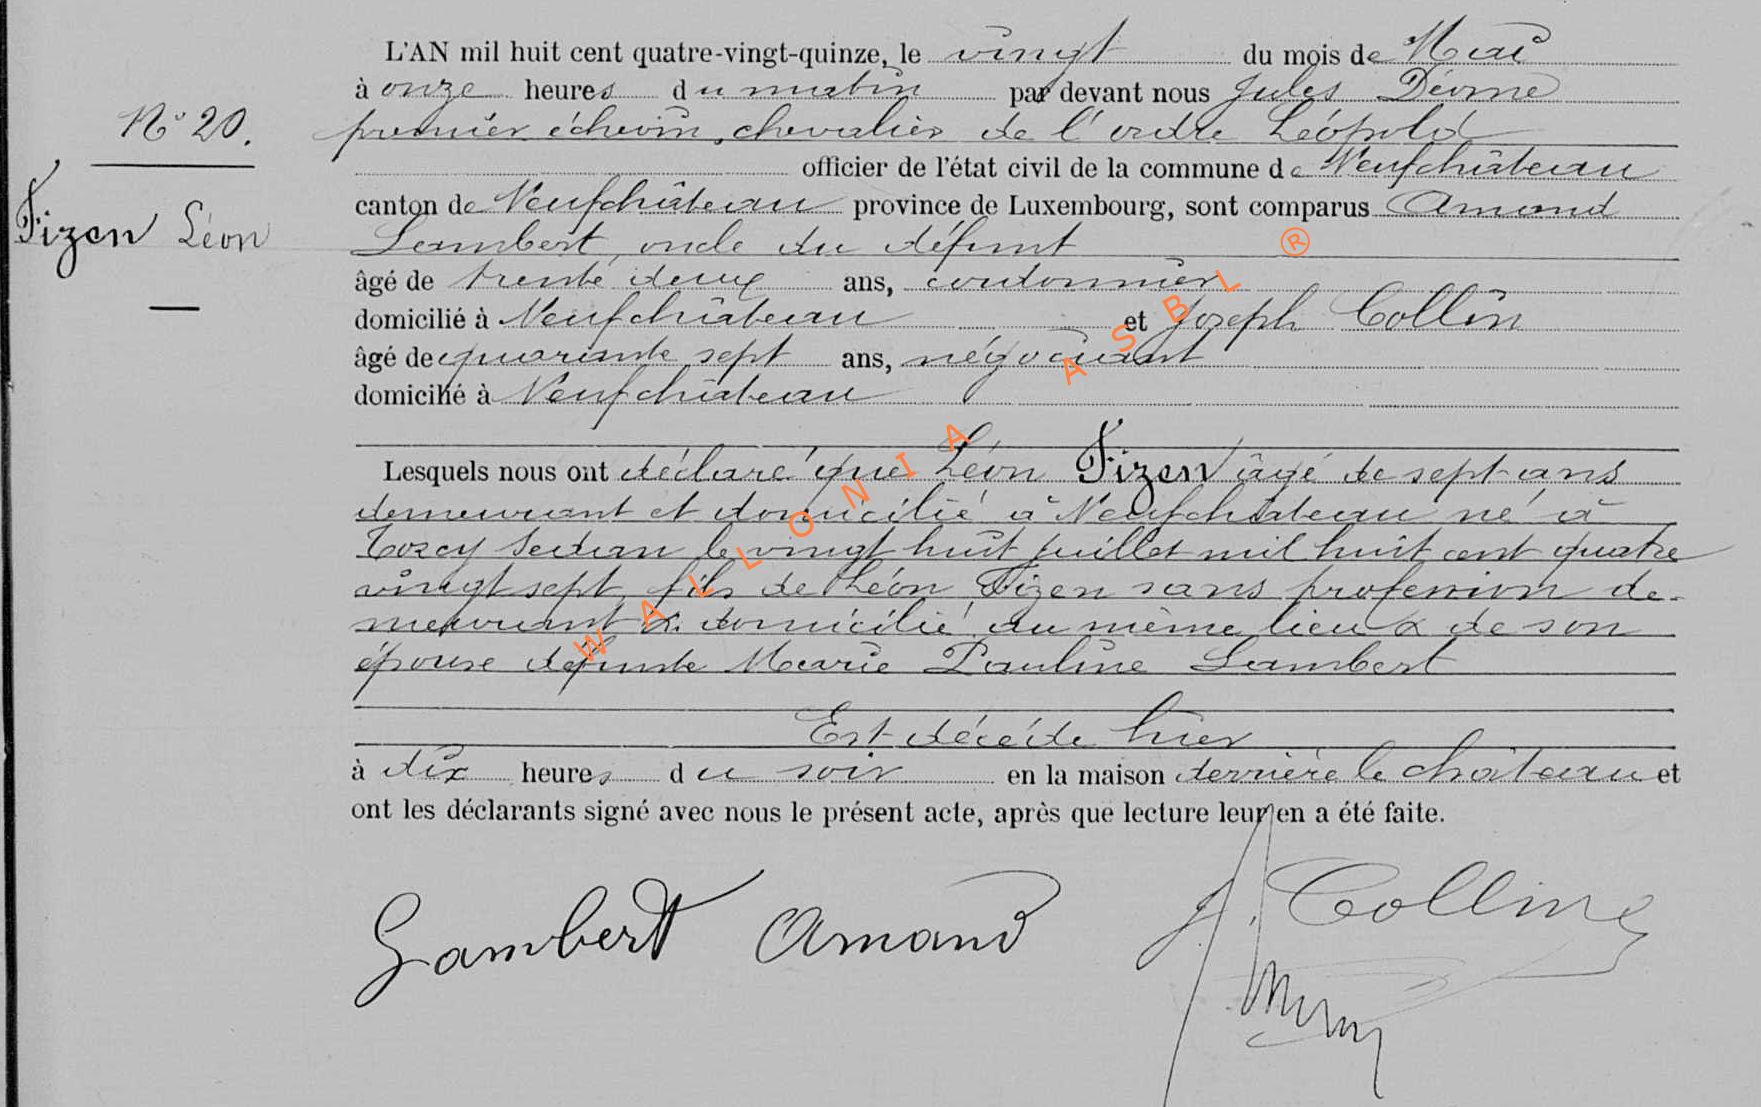 L'AN mil huit cent quatre-vingt-quinze, le vingt du mois de Mai
à onze heures du matin par devant nous Jules Déome
N° 20.
premier échevin, chevalier de l'ordre Léopold
officier de l'état civil de la commune de Neufchâteau
Fizen Léon
canton de Neufchâteau province de Luxembourg, sont comparus Amand
Lambert, oncle du défunt
âgé de trente deux ans, cordonnier
domicilié à Neufchâteau et Joseph Collin
âgé de quarante sept ans, négociant
domicilié à Neufchâteau
Lesquels nous ont déclaré que Léon Fizen âgé de sept ans
demeurant et domicilié à Neufchâteau né à
Torcy Sedan le vingt huit juillet mil huit cent quatre
vingt sept, fils de Léon Fizen sans profession de-
meurant & domicilié au même lieu & de son
épouse défunte Marie Pauline Lambert
Est décédé hier
à dix heures du soir en la maison derrière le château et
ont les déclarants signé avec nous le présent acte, après que lecture leur en a été faite.
Lambert Amand J. Collin
WALLONIA ASBL ®